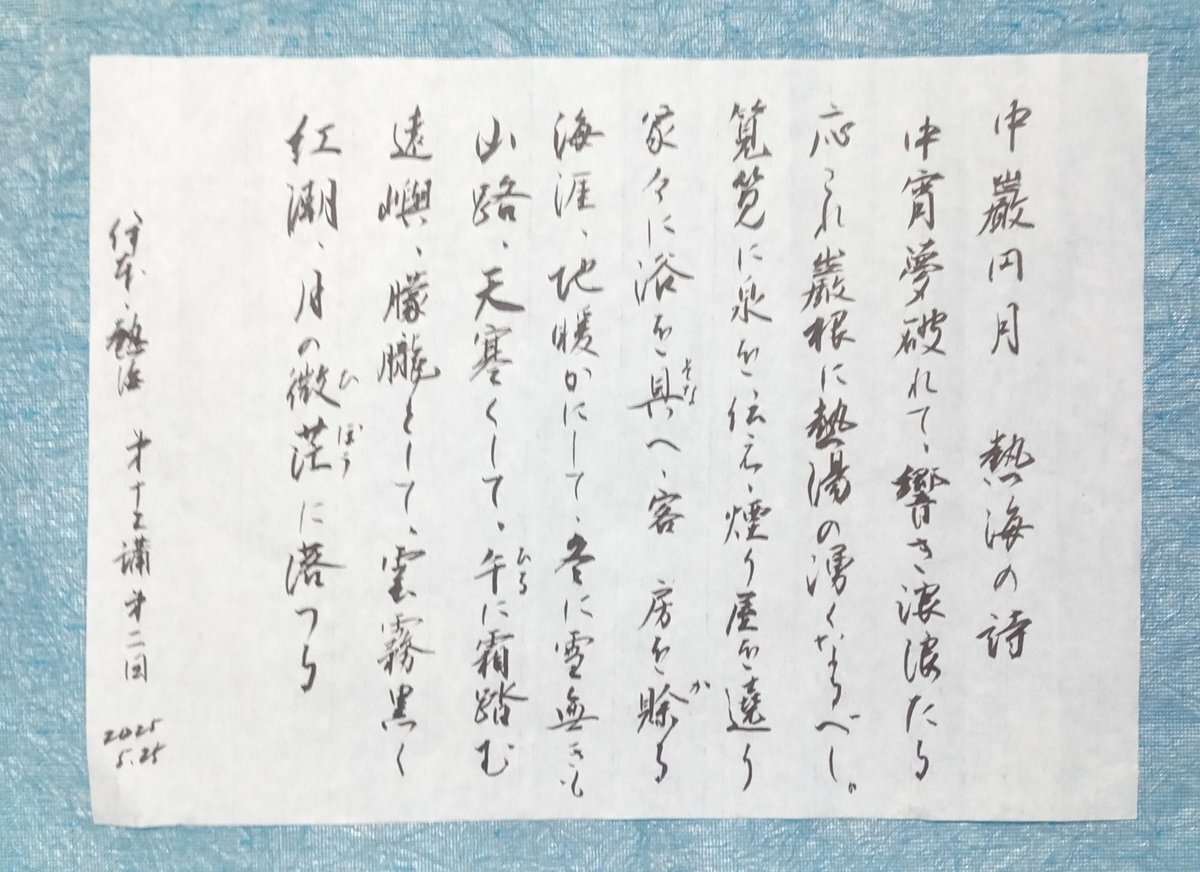 中巌円月 熱海の詩
中宵夢破れて、響き滾滾たる
応これ巌根に熱湯の湧くなるべし。
筧筧に泉を伝え、煙り屋を遶り
家々に浴を具へ、客 房を賖る
海涯、地暖かにして、冬に雪無きも
山路、天寒くして、午に霜踏む
遠嶼、朦朧として、雲霧黒く
紅潮、月の微茫に落つる
伊東、熱海 第十五講第二回
2025
5.25